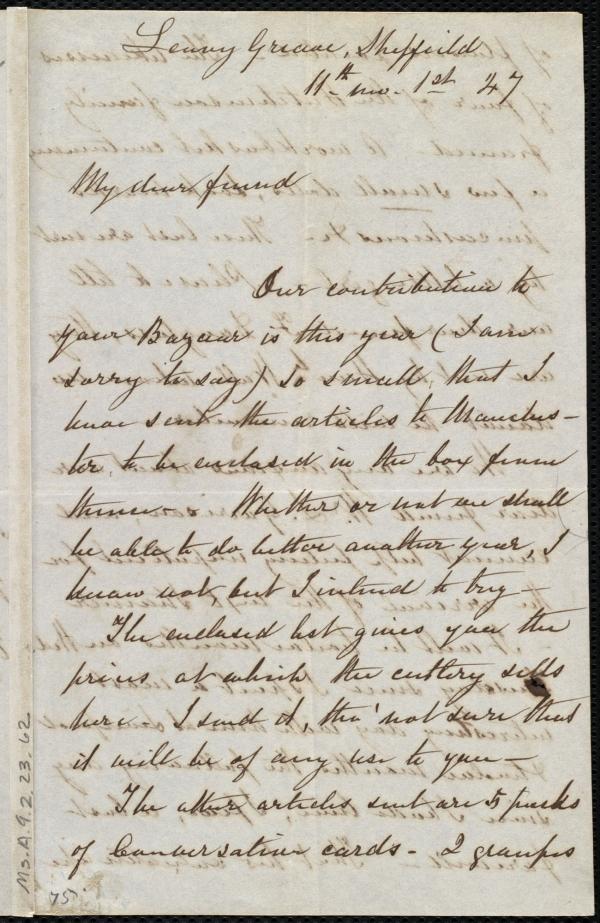 Leavy Greave, Sheffield
11th mo. 1st 47
My dear friend
Our contribution to
your Bazaar is this year (I am
sorry to say) so small, that I
have sent the articles to Manches-
ter, to be enclosed in the box from
thence - Whether or not we shall
be able to do better another year, I
know not but I intend to try -
The enclosed list gives you the
prices at which the cutlery sells
here - I send it, tho' not sure that
it will be of any use to you -
The other articles sent are 5 packs
of Conversation cards - 2 groups
Ms.A.9.2.23.62
75